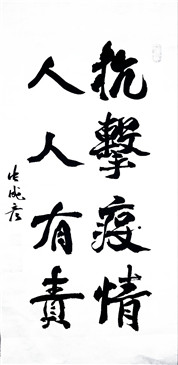 抗擊疫情
人人有責